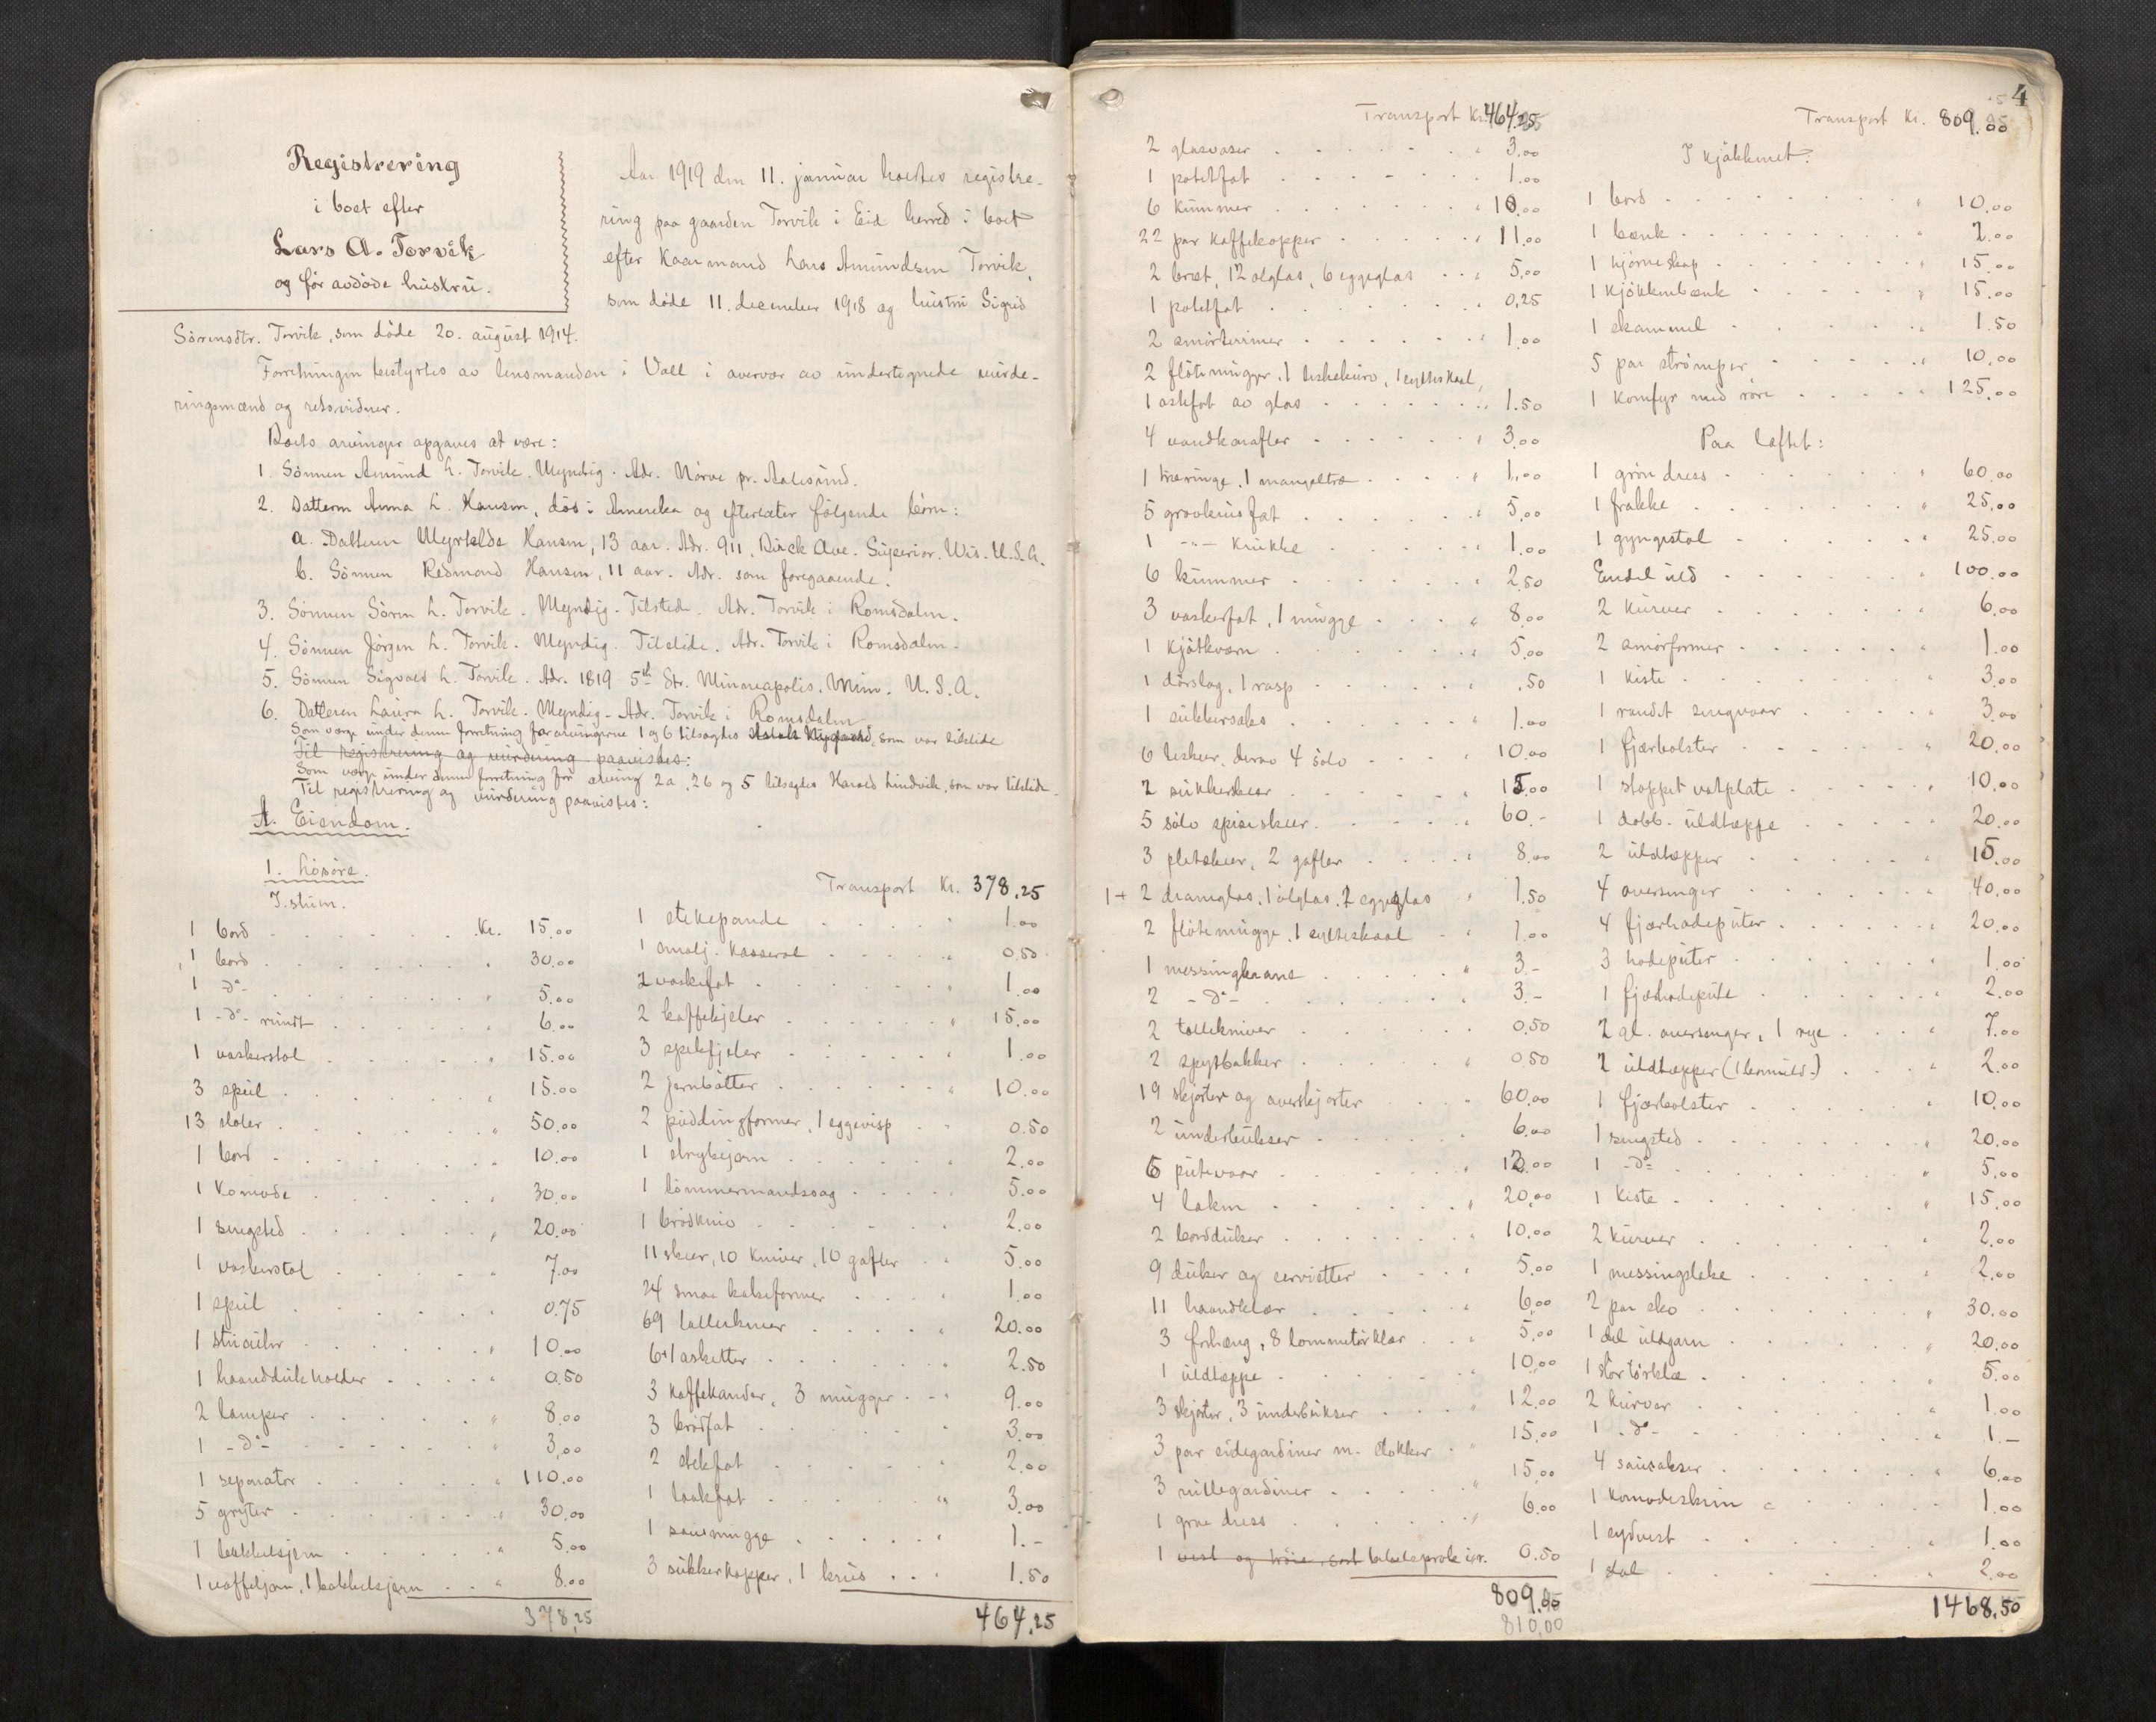 Registrering
i boet efter
Lars A. Torvik
og før avdøde hustru.
Aar 1919 den 11. januar holdtes registre-
ring paa gaarden Torvik i Eid herred i boet
efter Kaarmand Lars Amundsen Torvik,
som døde 11. december 1918 og hustru Sigrid
Sørensdtr. Torvik, som døde 20. august 1914.
Forretningen bestyrtes av lensmanden i Voll i overvær av undertegnede vurde-
ringsmænd og retsvidner.
Boets arvinger opgaves at være:
1. Sønnen Amund L. Torvik. Myndig. Adr. Nørve pr. Aalesund.
2. Datteren Anna L. Hansen, død i Amerika og efterlater følgende børn:
a. Datteren Myrtelde Hansen, 13 aar. Adr. 911, Birck Ave. Superior. Wis. U.S.A.
b. Sønnen Redmond Hansen, 11 aar. Adr. som foregaaende.
3. Sønnen Søren L. Torvik. Myndig. Tilstede. Adr. Torvik i Romsdalen.
4. Sønnen Jørgen L. Torvik. Myndig. Tilstede. Adr. Torvik i Romsdalen.
5. Sønnen Sigvald L. Torvik. Adr. 1819 5th Str. Minneapolis. Minn. U.S.A.
6. Datteren Laura L. Torvik. Myndig. Adr. Torvik i Romsdalen
Som verge under denne forretning for arvingerne 1 og 6 tilsagdes som var tilstede
Til registrering og vurdering paavistes:
Som verge under denne forretning for arving 2a, 2b og 5 tilsagdes Harald Lindvik, som var tilstede.
Til registrering og vurdering paavistes:
A. Eiendom.
1. Løsøre.
I stuen.
1 bord . . . Kr. 15.00
1 bord . . . " 30.00
1 -d°- . . . " 5.00
1 -d°- rundt . . . " 6.00
1 vaskerstol . . . " 15.00
3 speil . . . " 15.00
13 stoler . . . " 50.00
1 bord . . . " 10.00
1 komode . . . " 30.00
1 sengsted . . . " 20.00
1 vaskerstol . . . " 7.00
1 speil . . . 0.75
1 stueuhr . . . " 10.00
1 haanddukholder . . . " 0.50
2 lamper . . . " 8.00
1 -d°- . . . " 3.00
1 separator . . . " 110.00
5 gryter . . . " 30.00
1 bakkelsjern . . . " 5.00
1 vaffeljern, 1 bakkelsjern . . . " 8.00
378,25
Transport Kr. 378,25
1 stekepande . . . " 1.00
1 emalj. kasserol . . . " 0.50
2 vaskefat . . . " 1.00
2 kaffekjeler . . . " 15.00
3 spekfjeler . . . " 1.00
2 jernbøtter . . . " 10.00
2 puddingformer, 1 eggevisp . . " 0.50
1 strykejern . . . " 2.00
1 tømmermandssag . . . " 5.00
1 brødkniv . . . " 2.00
11 skeer, 10 kniver, 10 gafler . . " 5.00
24 smaa kakeformer . . . " 1.00
69 tallerkener . . . " 20.00
6+1 asketter . . . " 2.50
3 kaffekander, 3 mugger . . " 9.00
3 brødfat . . . " 3.00
2 stekfat . . . " 2.00
1 laakfat . . . " 3.00
1 sausmugge . . . " 1.-
3 sukkerkopper, 1 krus . . . 1.50
464,25
4
Transport Kr. 464,25
2 glasvaser . . . " 3.00
1 potetfat . . . " 1.00
6 kummer . . . " 10.00
22 par kaffekopper . . . " 11.00
2 bret, 12 ølglas, 6 eggeglas . . " 5.00
1 potetfat . . . " 0.25
2 smørterriner . . . " 1.00
2 fløtemugger, 1 teskekurv, 1 sylteskaal,
1 askfat av glas . . . " 1.50
4 vandkarafler . . . " 3.00
1 træringe, 1 mangeltræ . . . " 1.00
5 grovkrusfat . . . " 5.00
1 -"- krukke . . . " 1.00
6 kummer . . . " 2.50
3 vaskefat, 1 mugge . . . " 8.00
1 kjøtkvern . . . " 5.00
1 dørslag, 1 rasp . . . " .50
1 sukkersaks . . . " 1.00
6 teskeer, derav 4 sølv . . . " 10.00
2 sukkerskeer . . . " 15.00
5 sølv spiseskeer . . . " 60.-
3 pletskeer, 2 gafler . . . " 8.00
1+ 2 dramglas, 1 ølglas, 2 eggeglas " 1.50
2 fløtemugge, 1 sylteskaal . . " 1.00
1 messingkrane . . . " 3.-
2 -d°- . . . " 3.-
2 tollekniver . . . 0.50
2 spytbakker . . . " 0.50
19 skjorter og overskjorter . . . " 60.00
2 underbukser . . . " 6.00
6 putevaar . . . " 12.00
4 laken . . . " 20.00
2 bordduker . . . " 10.00
9 duker og servietter . . . " 5.00
11 haandklær . . . " 6.00
3 forhæng, 8 lommetørklær . . " 5.00
1 uldteppe . . . 10.00
3 skjorter, 3 underbukser . . . " 12.00
3 par sidegardiner m. stokker . " 15.00
3 rullegardiner . . . " 15.00
1 graa dress . . . " 6.00
1 vest og trøie, sort 0.50
809.00
810,00
Transport Kr. 809.00
I kjøkkenet:
1 bord . . . " 10.00
1 benk . . . " 2.00
1 hjørneskap . . . " 15.00
1 kjøkkenbænk . . . " 15.00
1 skammel . . . " 1.50
5 par strømper . . . " 10.00
1 komfyr med røre . . . " 125.00
Paa loftet:
1 grøn dress . . . " 60.00
1 frakke . . . " 25.00
1 gyngestol . . . " 25.00
Endel uld . . . " 100.00
2 kurver . . . " 6.00
2 smørformer . . . " 1.00
1 kiste . . . " 3.00
1 randet sengvaar . . . " 3.00
1 fjærbolster . . . " 20.00
1 stoppet vatplate . . . " 10.00
1 dobb. uldteppe . . . " 20.00
2 uldtepper . . . " 15.00
4 oversenger . . . " 40.00
4 fjærhodeputer . . . " 20.00
3 hodeputer . . . " 1.00
1 fjærhodepute . . . " 2.00
2 gl. oversenger, 1 rye . . . " 7.00
2 uldtepper (1 bomuld.) . . . " 2.00
1 fjærbolster . . . " 10.00
1 sengsted . . . " 20.00
1 -d°- . . . " 5.00
1 kiste . . . " 15.00
2 kurver . . . " 2.00
1 messinglake . . . " 2.00
2 par sko . . . " 30.00
1 del uldgarn . . . " 20.00
1 stor tørklæ . . . " 5.00
2 kurver . . . " 1.00
1 -d°- . . . " 1.-
4 sausakser . . . " 6.00
1 komodeskrin . . . " 1.00
1 sydvest . . . " 1.00
1 stol . . . " 2.00
1468,50